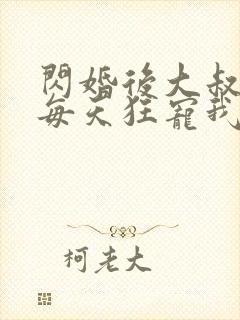 閃婚後大叔
每天狂寵我
柯老大